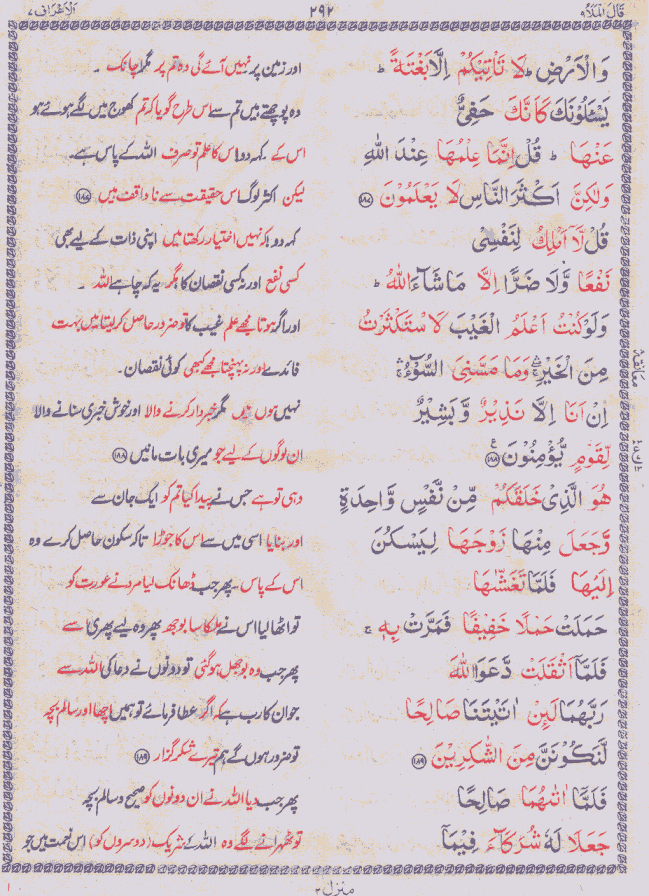 قَالَ الْمَلَاُ ٩
٢٩٢
اَلْاَعْرَاف ٧
وَالْاَرْضِ ؕ لَا تَاْتِيْكُمْ اِلَّا بَغْتَةً ؕ
اور زمین پر نہیں آئے گی وہ تم پر مگر اچانک ۔
يَسْـَٔلُوْنَكَ كَاَنَّكَ حَفِىٌّ
وہ پوچھتے ہیں تم سے اس طرح گویا کہ تم کھوج میں لگے ہوئے ہو
عَنْهَا ؕ قُلْ اِنَّمَا عِلْمُهَا عِنْدَ اللّٰهِ
اس کے ۔ کہہ دو! اس کا علم تو صرف اللہ کے پاس ہے
وَلٰكِنَّ اَكْثَرَ النَّاسِ لَا يَعْلَمُوْنَ ﴿١٨٧﴾
لیکن اکثر لوگ اس حقیقت سے نا واقف ہیں ﴿۱۸۷﴾
قُلْ لَّاۤ اَمْلِكُ لِنَفْسِىْ
کہہ دو! کہ نہیں اختیار رکھتا میں اپنی ذات کے لیے بھی
نَفْعًا وَّلَا ضَرًّا اِلَّا مَا شَآءَ اللّٰهُ ؕ
کسی نفع اور نہ کسی نقصان کا مگر یہ کہ چاہے اللہ ۔
وَلَوْ كُنْتُ اَعْلَمُ الْغَيْبَ لَاسْتَكْثَرْتُ
اور اگر ہوتا مجھے علم غیب کا تو ضرور حاصل کر لیتا میں بہت
مِنَ الْخَيْرِ ۛۚ وَمَا مَسَّنِىَ السُّوْٓءُ ۛۚ
فائدے اور نہ پہنچتا مجھے کبھی کوئی نقصان۔
اِنْ اَنَا اِلَّا نَذِيْرٌ وَّبَشِيْرٌ
نہیں ہوں میں مگر خبردار کرنے والا اور خوش خبری سنانے والا
لِّقَوْمٍ يُّؤْمِنُوْنَ ﴿١٨٨﴾ ع
ان لوگوں کے لیے جو میری بات مانیں ﴿۱۸۸﴾
هُوَ الَّذِىْ خَلَقَكُمْ مِّنْ نَّفْسٍ وَّاحِدَةٍ
وہی تو ہے جس نے پیدا کیا تم کو ایک جان سے
وَّجَعَلَ مِنْهَا زَوْجَهَا لِيَسْكُنَ
اور بنایا اسی میں سے اس کا جوڑا تاکہ سکون حاصل کرے وہ
اِلَيْهَا ۚ فَلَمَّا تَغَشّٰىهَا
اس کے پاس ۔ پھر جب ڈھانک لیا مرد نے عورت کو
حَمَلَتْ حَمْلًا خَفِيْفًا فَمَرَّتْ بِهٖ ۚ
تو اٹھا لیا اس نے ہلکا سا بوجھ پھر وہ لیے پھری اسے
فَلَمَّاۤ اَثْقَلَتْ دَّعَوَا اللّٰهَ
پھر جب وہ بوجھل ہو گئی تو دونوں نے دعا کی اللہ سے
رَبَّهُمَا لَئِنْ اٰتَيْتَنَا صَالِحًا
جو ان کا رب ہے کہ اگر عطا فرمائے تو ہمیں اچھا اور سالم بچہ
لَّنَكُوْنَنَّ مِنَ الشّٰكِرِيْنَ ﴿١٨٩﴾
تو ضرور ہوں گے ہم تیرے شکر گزار ﴿۱۸۹﴾
فَلَمَّاۤ اٰتٰىهُمَا صَالِحًا
پھر جب دیا اللہ نے ان دونوں کو صحیح و سالم بچہ
جَعَلَا لَهٗ شُرَكَآءَ فِيْمَاۤ
تو ٹھہرانے لگے وہ اللہ کے شریک (دوسروں کو) اس نعمت میں جو
معانقة
منزل ٢